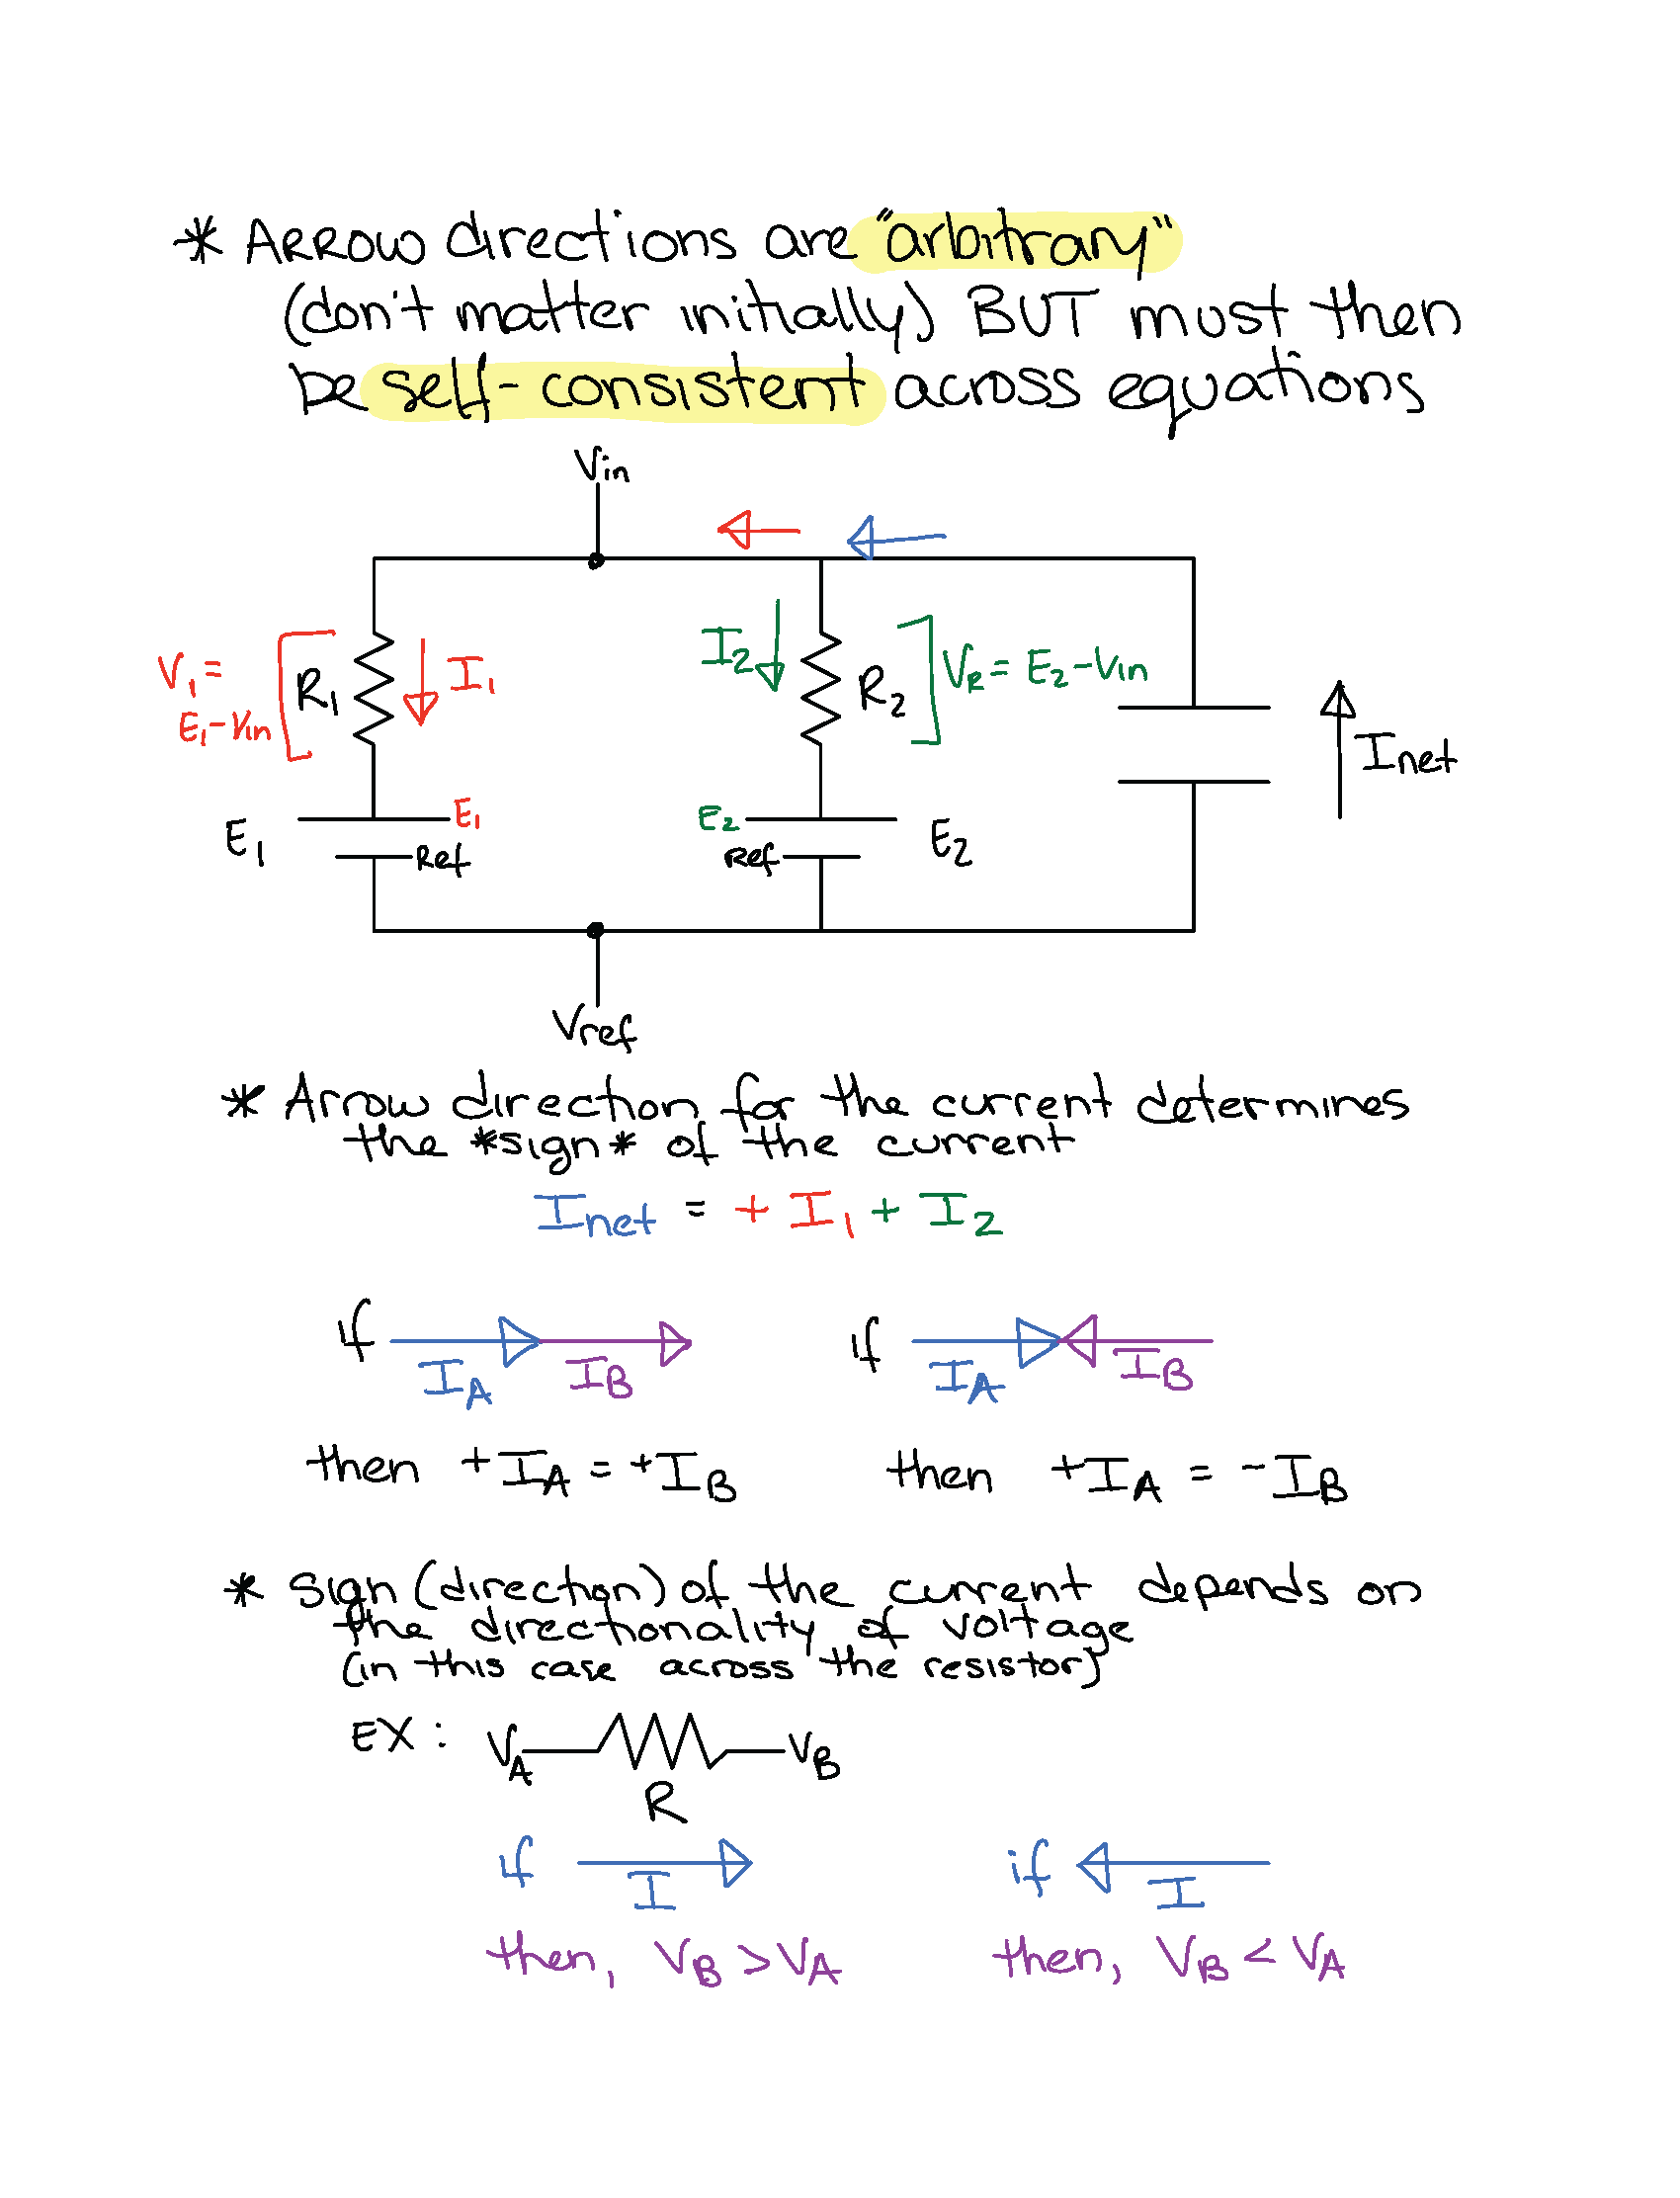 * Arrow directions are "arbitrary"
(don't matter initially) BUT must then
be self-consistent across equations
Vin
V₁ =
E₁-Vin
R₁
I₁
I₂
R₂
VR = E₂-Vin
Inet
E₁
E₁
Ref
E₂
Ref
E₂
Vref
* Arrow direction for the current determines
the *sign* of the current
Inet = + I₁ + I₂
if
IA
IB
if
IA
IB
then +IA = +IB
then +IA = -IB
* Sign (direction) of the current depends on
the directionality of voltage
(in this case across the resistor)
EX: VA
VB
R
if
I
if
I
then, VB > VA
then, VB < VA